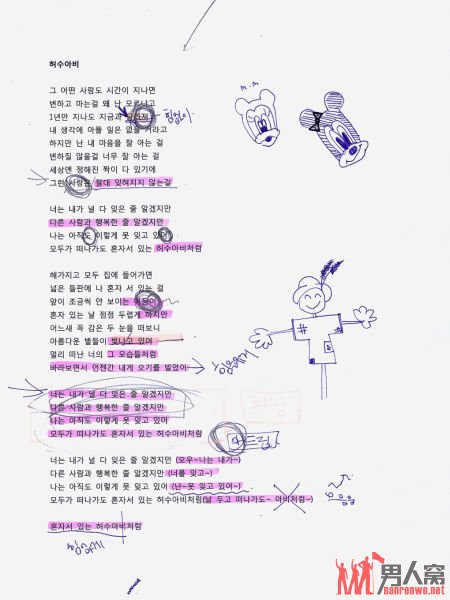 허수아비
그 어떤 사랑도 시간이 지나면
변하고 마는걸 왜 난 모르냐고
1년만 지나도 지금과
내 생각에 아플 일은 없을 거라고
하지만 난 내 마음을 잘 아는 걸
변하질 않을걸 너무 잘 아는 걸
세상엔 정해진 짝이 다 있기에
그런 사랑은 절대 잊혀지지 않는걸
너는 내가 널 다 잊은 줄 알겠지만
다른 사람과 행복한 줄 알겠지만
나는 아직도 이렇게 못 잊고 있어
모두가 떠나가도 혼자서 있는 허수아비처럼
해가지고 모두 집에 들어가면
넓은 들판에 나 혼자 서 있는 걸
앞이 조금씩 안 보이는
혼자 있는 날 점점 두렵게 하지만
어느새 꼭 감은 두 눈을 떠보니
아름다운 별들이 빛나고 있어
멀리 떠난 너의 그 모습들처럼
바라보면서 언젠간 내게 오기를 빌었어
너는 내가 널 다 잊은 줄 알겠지만
다른 사람과 행복한 줄 알겠지만
나는 아직도 이렇게 못 잊고 있어
모두가 떠나가도 혼자서 있는 허수아비처럼
너는 내가 널 다 잊은 줄 알겠지만 (오우~나는 내가~)
다른 사람과 행복한 줄 알겠지만 (너를 잊고~)
나는 아직도 이렇게 못 잊고 있어 (난~못 잊고 있어~)
모두가 떠나가도 혼자서 있는 허수아비처럼(날 두고 떠나가도~ 아비처럼~)
혼자서 있는 허수아비처럼
男人窝
nanrenwo.net